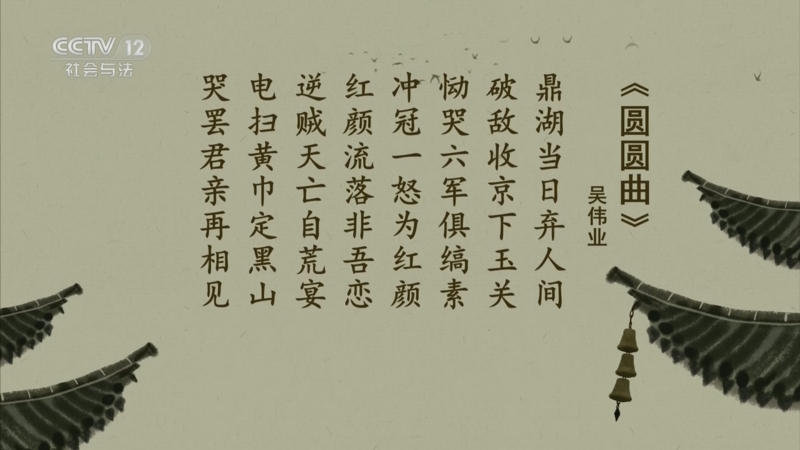 CCTV 12
社会与法
《圆圆曲》
吴伟业
鼎湖当日弃人间
破敌收京下玉关
恸哭六军俱缟素
冲冠一怒为红颜
红颜流落非吾恋
逆贼天亡自荒宴
电扫黄巾定黑山
哭罢君亲再相见